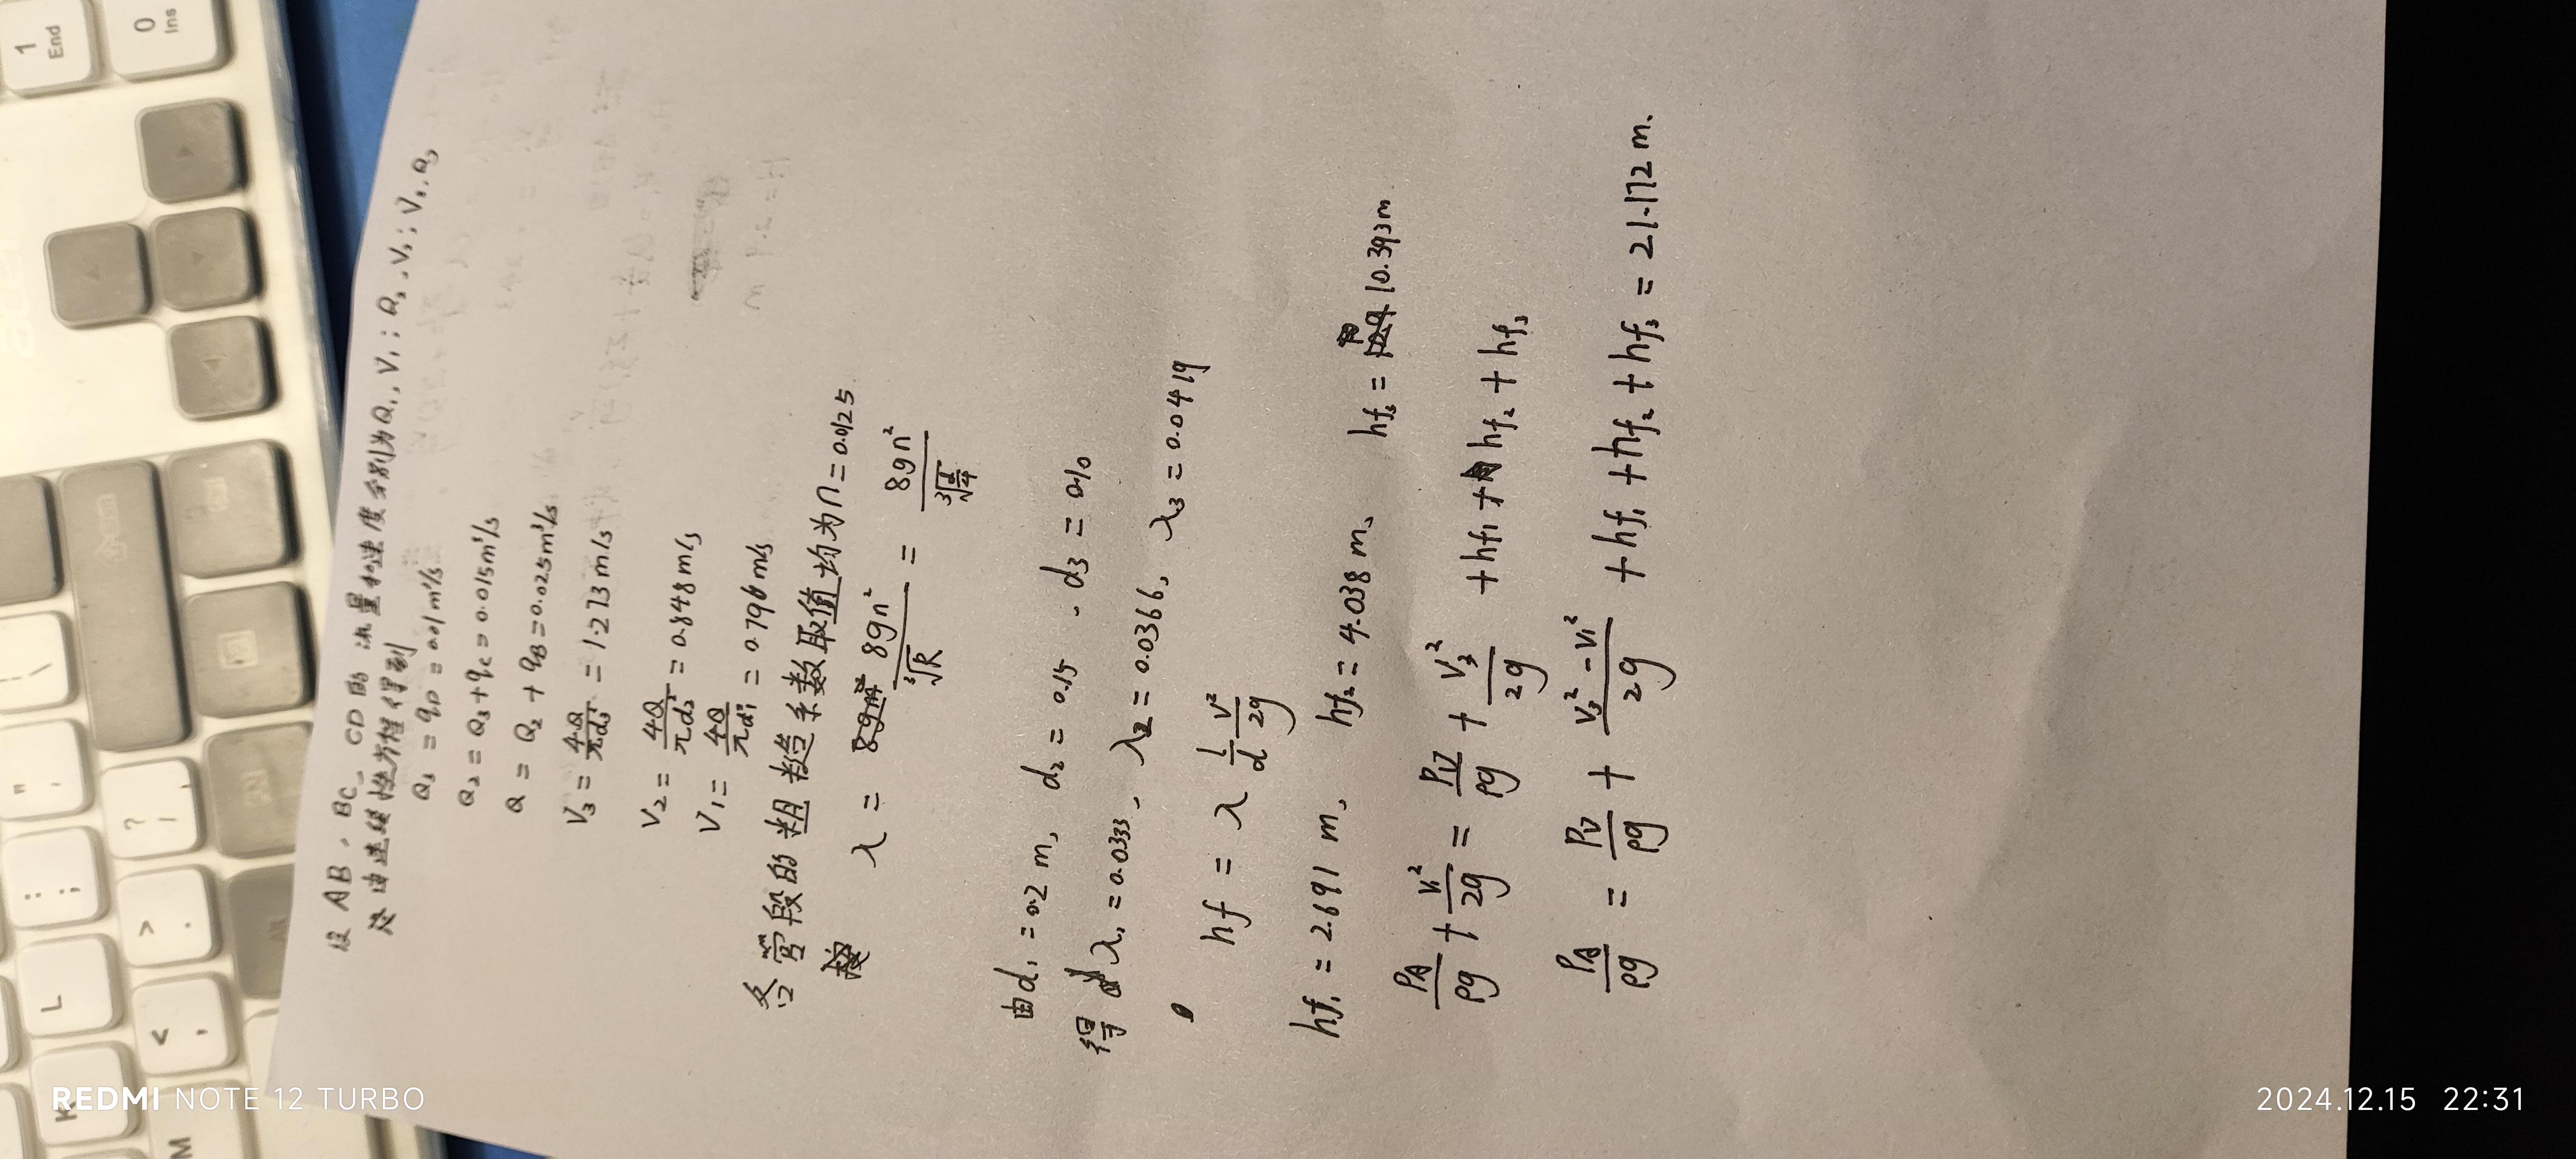 设 AB、BC、CD的 流量和速度分别为Q₁, V₁; Q₂, V₂; V₃, Q₃
由连续性方程得到
Q₃ = q_D = 0.01m³/s
Q₂ = Q₃+q_C = 0.015m³/s
Q = Q₂ + q_B = 0.025m³/s
V₃ = 4Q/πd₃² = 1.273 m/s
V₂ = 4Q/πd₂² = 0.848 m/s
V₁ = 4Q/πd₁² = 0.796 m/s
各管段的粗糙系数取值均为n=0.0125
λ = 8gn²/³√R = 8gn²/³√(d/4)
由d₁=0.2 m, d₂ = 0.15 . d₃ = 0.10
得 λ₁ = 0.0333、 λ₂ = 0.0366、 λ₃ = 0.0419
hf = λ l/d V²/2g
hf₁ = 2.691 m、 hf₂ = 4.038 m、 hf₃ = 10.393m
PA/ρg + V₁²/2g = PD/ρg + V₃²/2g + hf₁ + hf₂ + hf₃
PA/ρg = PD/ρg + (V₃² - V₁²)/2g + hf₁ + hf₂ + hf₃ = 21.172 m.
1
End
0
Ins
\
"
'
:
;
?
/
>
.
<
,
L
K
M
REDMI NOTE 12 TURBO
2024.12.15 22:31